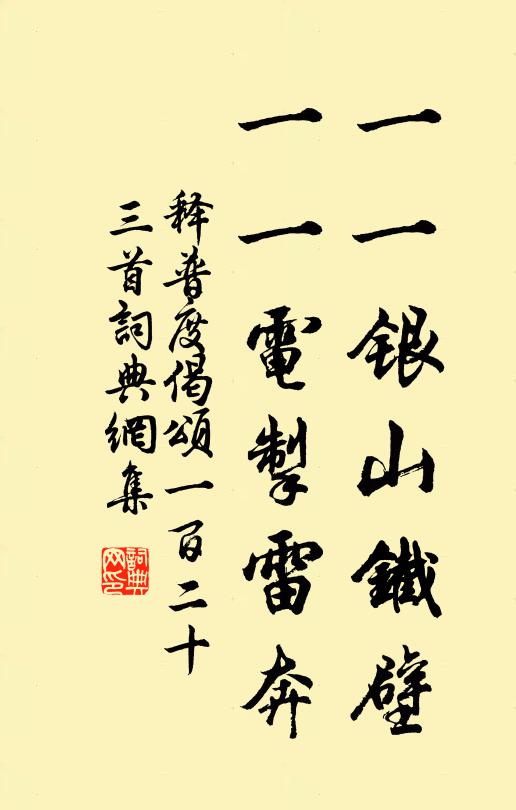 一一銀山鐵壁
一一電掣雷奔
释普度偈頌一百二十
三首詞典網集
詞典網印